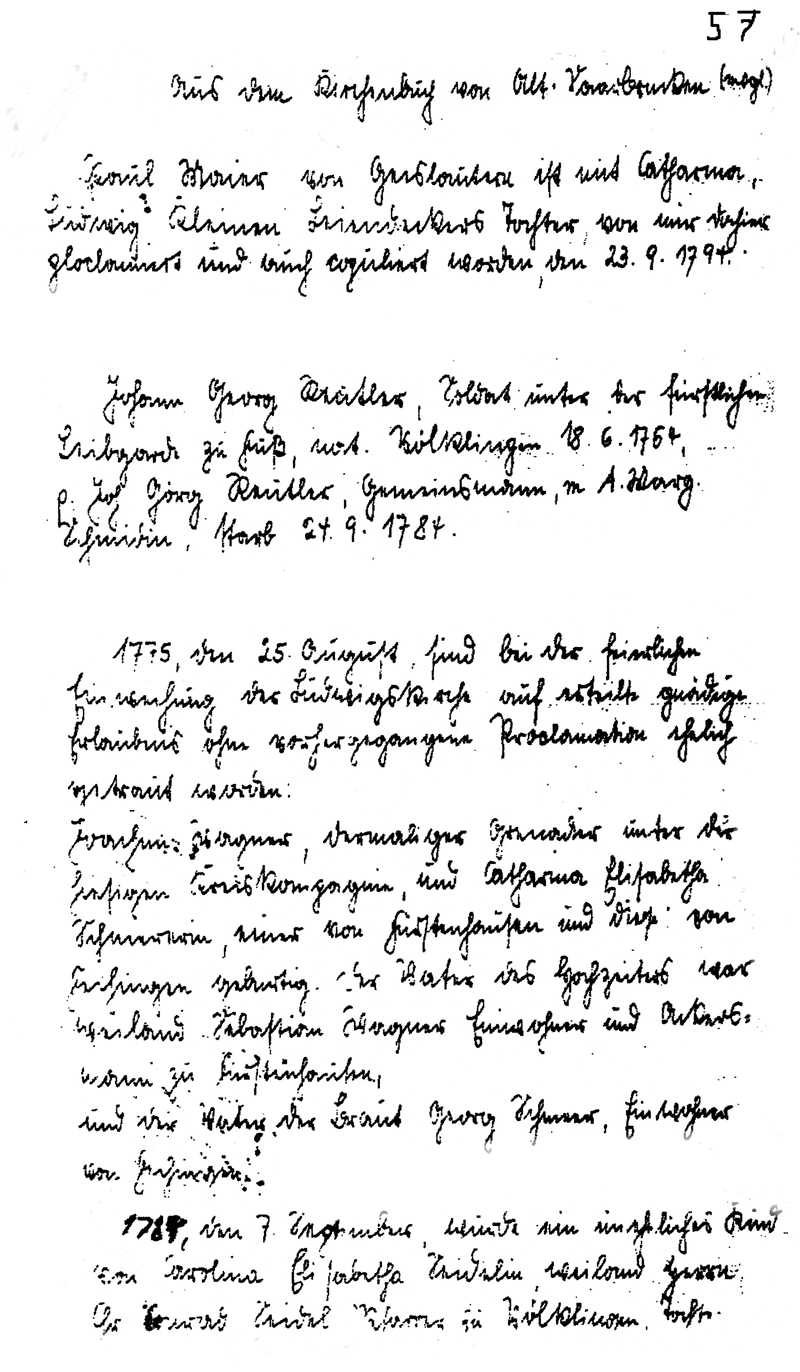 57
Aus dem Kirchenbuch von Alt-Saarbrücken (evgl.)
Paul Maier von Geislautern ist mit Catharina,
Ludwig Kleinen Leiendeckers Tochter, von mir dahier
proclamiert und auch copuliert worden, den 23.9.1794.
Johann Georg Reutler, Soldat unter der fürstlichen
Leibgarde zu Fuß, nat. Völklingen 18.6.1764,
p. Joh Görg Reutler, Gemeinsmann, m A. Marg.
Schmidin, starb 24.9.1784.
1775, den 25. August, sind bei der feierlichen
Einweihung der Ludwigskirche auf erteilte gnädige
Erlaubnis ohne vorhergegangene Proclamation ehelich
getraut worden:
Joachim Wagner, dermaliger Grenadier unter der
hiesigen Kreiskompagnie, und Catharina Elisabetha
Schmererin, einer von Fürstenhausen und diese von
Fechingen gebürtig. Der Vater des Hochzeiters war
weiland Sebastian Wagner Einwohner und Ackers-
mann zu Fürstenhausen,
und der Vater der Braut Georg Schmeer, Einwohner
von Fechingen.
den 7. September, wurde ein unehliches Kind
von Carolina Elisabetha Seidelin, weiland Herrn
Conrad Seidel Pfarrer zu Völklingen, Tochter